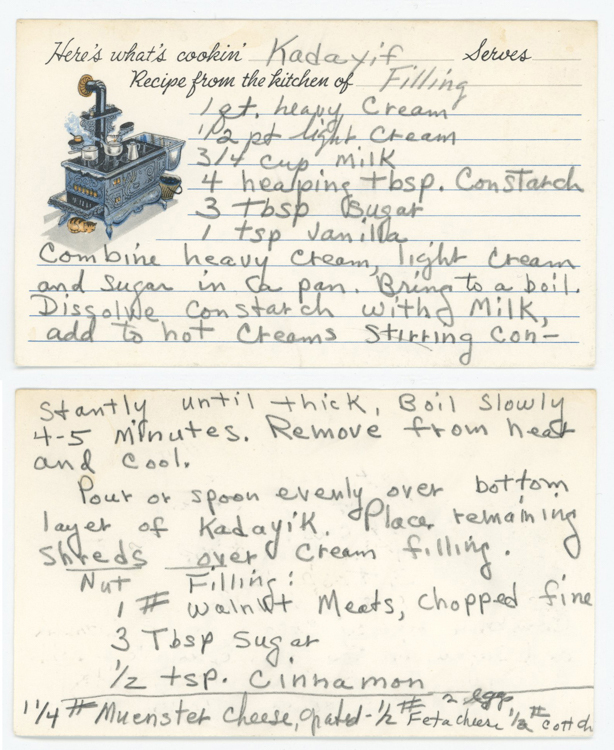 Here's what's cookin' Kadayif Serves
Recipe from the kitchen of Filling
1 qt. heavy Cream
1/2 pt light Cream
3/4 cup milk
4 heaping tbsp. Constarch
3 tbsp Sugar
1 tsp vanilla
Combine heavy cream, light cream
and sugar in a pan. Bring to a boil.
Dissolve Constarch with Milk,
add to hot creams stirring con-
stantly until thick, Boil slowly
4-5 minutes. Remove from heat
and cool.
Pour or spoon evenly over bottom
layer of Kadayik. Place remaining
shreds over cream filling.
Nut Filling:
1 # Walnut Meats, chopped fine
3 Tbsp Sugar
1/2 tsp. Cinnamon
1 1/4 # Muenster cheese, grated - 1/2 # Feta cheese 2 eggs 1/2 # cott ch